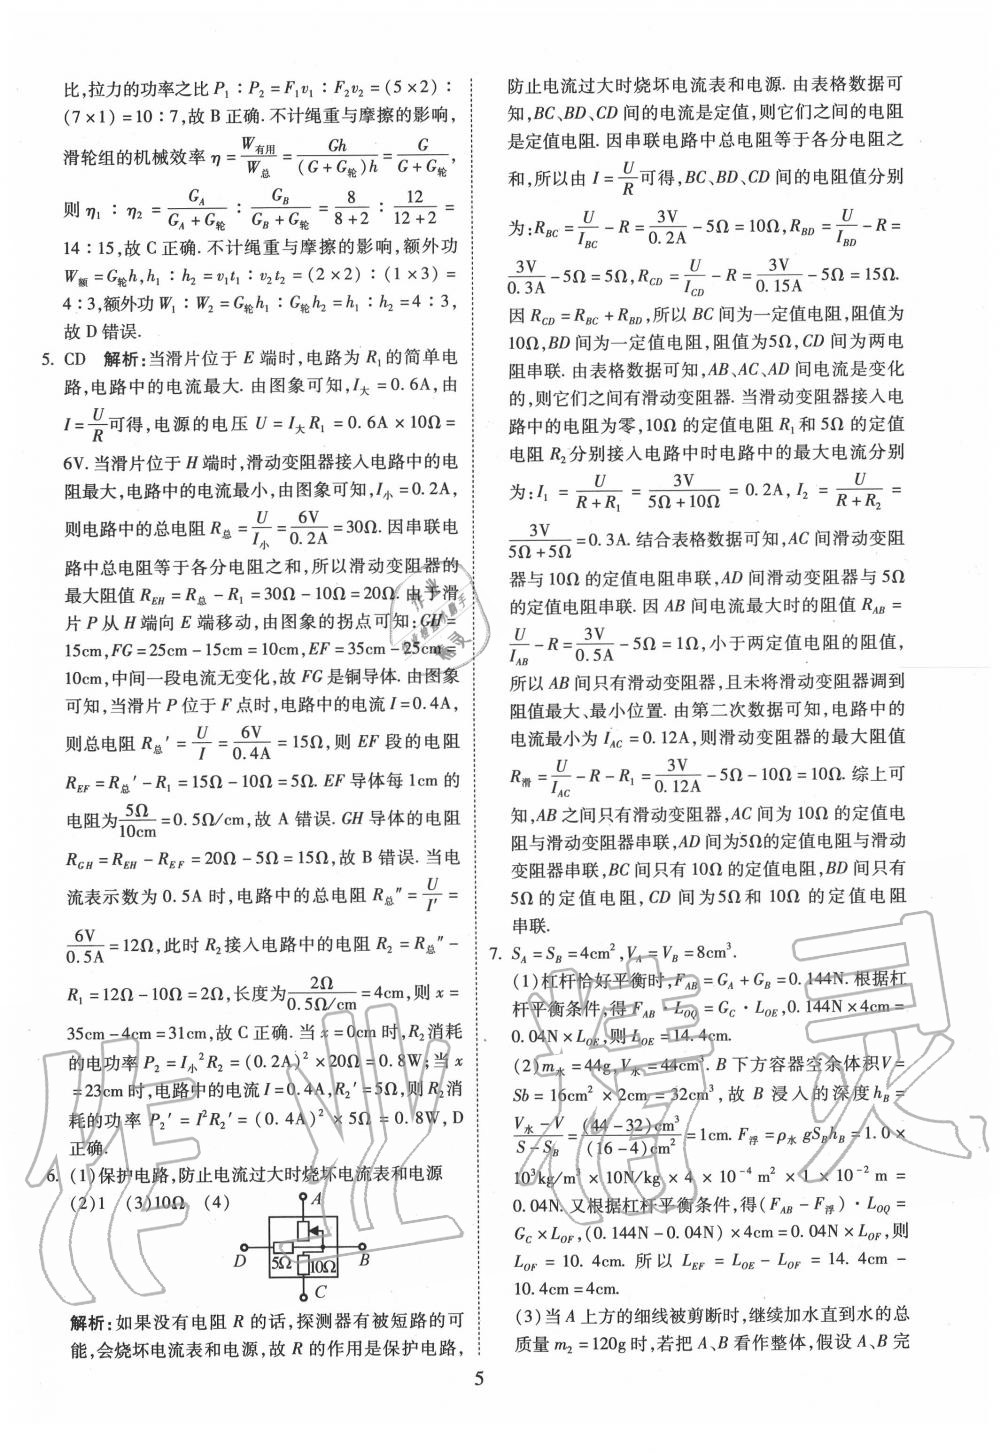 比,拉力的功率之比 P₁∶P₂=F₁v₁∶F₂v₂=(5×2)∶
(7×1)=10∶7,故 B 正确. 不计绳重与摩擦的影响,
滑轮组的机械效率 η=W有用/W总=Gh/(G+G轮)h=G/(G+G轮),
则 η₁∶η₂=G_A/(G_A+G轮)∶G_B/(G_B+G轮)=8/(8+2)∶12/(12+2)=
14∶15,故 C 正确. 不计绳重与摩擦的影响,额外功
W额=G轮h,h₁∶h₂=v₁t₁∶v₂t₂=(2×2)∶(1×3)=
4∶3,额外功 W₁∶W₂=G轮h₁∶G轮h₂=h₁∶h₂=4∶3,
故 D 错误.
5. CD 解析:当滑片位于 E 端时,电路为 R₁的简单电
路,电路中的电流最大. 由图象可知,I大=0.6A,由
I=U/R可得,电源的电压 U=I大R₁=0.6A×10Ω=
6V. 当滑片位于 H 端时,滑动变阻器接入电路中的电
阻最大,电路中的电流最小,由图象可知,I小=0.2A,
则电路中的总电阻 R总=U/I小=6V/0.2A=30Ω. 因串联电
路中总电阻等于各分电阻之和,所以滑动变阻器的
最大阻值 R_EH=R总-R₁=30Ω-10Ω=20Ω. 由于滑
片 P 从 H 端向 E 端移动,由图象的拐点可知:GH=
15cm,FG=25cm-15cm=10cm,EF=35cm-25cm=
10cm,中间一段电流无变化,故 FG 是铜导体. 由图象
可知,当滑片 P 位于 F 点时,电路中的电流 I=0.4A,
则总电阻 R总′=U/I=6V/0.4A=15Ω,则 EF 段的电阻
R_EF=R总′-R₁=15Ω-10Ω=5Ω. EF 导体每 1cm 的
电阻为5Ω/10cm=0.5Ω/cm,故 A 错误. GH 导体的电阻
R_GH=R_EH-R_EF=20Ω-5Ω=15Ω,故 B 错误. 当电
流表示数为 0.5A 时,电路中的总电阻 R总″=U/I′=
6V/0.5A=12Ω,此时 R₂接入电路中的电阻 R₂=R总″-
R₁=12Ω-10Ω=2Ω,长度为2Ω/0.5Ω/cm=4cm,则 x=
35cm-4cm=31cm,故 C 正确. 当 x=0cm 时,R₂消耗
的电功率 P₂=I小²R₂=(0.2A)²×20Ω=0.8W;当 x
=23cm时,电路中的电流 I=0.4A,R₂′=5Ω,则 R₂消
耗的功率 P₂′=I²R₂′=(0.4A)²×5Ω=0.8W,D
正确.
6. (1)保护电路,防止电流过大时烧坏电流表和电源
(2)1 (3)10Ω (4)
A
D
5Ω
10Ω
B
C
解析:如果没有电阻 R 的话,探测器有被短路的可
能,会烧坏电流表和电源,故 R 的作用是保护电路,
防止电流过大时烧坏电流表和电源. 由表格数据可
知,BC、BD、CD 间的电流是定值,则它们之间的电阻
是定值电阻. 因串联电路中总电阻等于各分电阻之
和,所以由 I=U/R可得,BC、BD、CD 间的电阻值分别
为:R_BC=U/I_BC-R=3V/0.2A-5Ω=10Ω,R_BD=U/I_BD-R=
3V/0.3A-5Ω=5Ω,R_CD=U/I_CD-R=3V/0.15A-5Ω=15Ω.
因 R_CD=R_BC+R_BD,所以 BC 间为一定值电阻,阻值为
10Ω,BD 间为一定值电阻,阻值为5Ω,CD 间为两电
阻串联. 由表格数据可知,AB、AC、AD 间电流是变化
的,则它们之间有滑动变阻器. 当滑动变阻器接入电
路中的电阻为零,10Ω 的定值电阻 R₁和 5Ω 的定值
电阻 R₂分别接入电路中时电路中的最大电流分别
为:I₁=U/(R+R₁)=3V/(5Ω+10Ω)=0.2A,I₂=U/(R+R₂)=
3V/(5Ω+5Ω)=0.3A. 结合表格数据可知,AC 间滑动变阻
器与 10Ω 的定值电阻串联,AD 间滑动变阻器与 5Ω
的定值电阻串联. 因 AB 间电流最大时的阻值 R_AB=
U/I_AB-R=3V/0.5A-5Ω=1Ω,小于两定值电阻的阻值,
所以 AB 间只有滑动变阻器,且未将滑动变阻器调到
阻值最大、最小位置. 由第二次数据可知,电路中的
电流最小为 I_AC=0.12A,则滑动变阻器的最大阻值
R滑=U/I_AC-R-R₁=3V/0.12A-5Ω-10Ω=10Ω. 综上可
知,AB 之间只有滑动变阻器,AC 间为 10Ω 的定值电
阻与滑动变阻器串联,AD 间为5Ω的定值电阻与滑动
变阻器串联,BC 间只有 10Ω 的定值电阻,BD 间只有
5Ω 的定值电阻,CD 间为5Ω 和 10Ω 的定值电阻
串联.
7. S_A=S_B=4cm²,V_A=V_B=8cm³.
(1)杠杆恰好平衡时,F_AB=G_A+G_B=0.144N. 根据杠
杆平衡条件,得 F_AB·L_OQ=G_C·L_OE,0.144N×4cm=
0.04N×L_OE,则 L_OE=14.4cm.
(2)m水=44g,V水=44cm³. B 下方容器空余体积V=
Sb=16cm²×2cm=32cm³,故 B 浸入的深度h_B=
(V水-V)/(S-S_B)=(44-32)cm³/(16-4)cm²=1cm. F浮=ρ水gS_Bh_B=1.0×
10³kg/m³×10N/kg×4×10⁻⁴m²×1×10⁻²m=
0.04N. 又根据杠杆平衡条件,得(F_AB-F浮)·L_OQ=
G_C×L_OF,(0.144N-0.04N)×4cm=0.04N×L_OF,则
L_OF=10.4cm. 所以 L_EF=L_OE-L_OF=14.4cm-
10.4cm=4cm.
(3)当 A 上方的细线被剪断时,继续加水直到水的总
质量 m₂=120g 时,若把 A、B 看作整体,假设 A、B 完
5
作业精灵